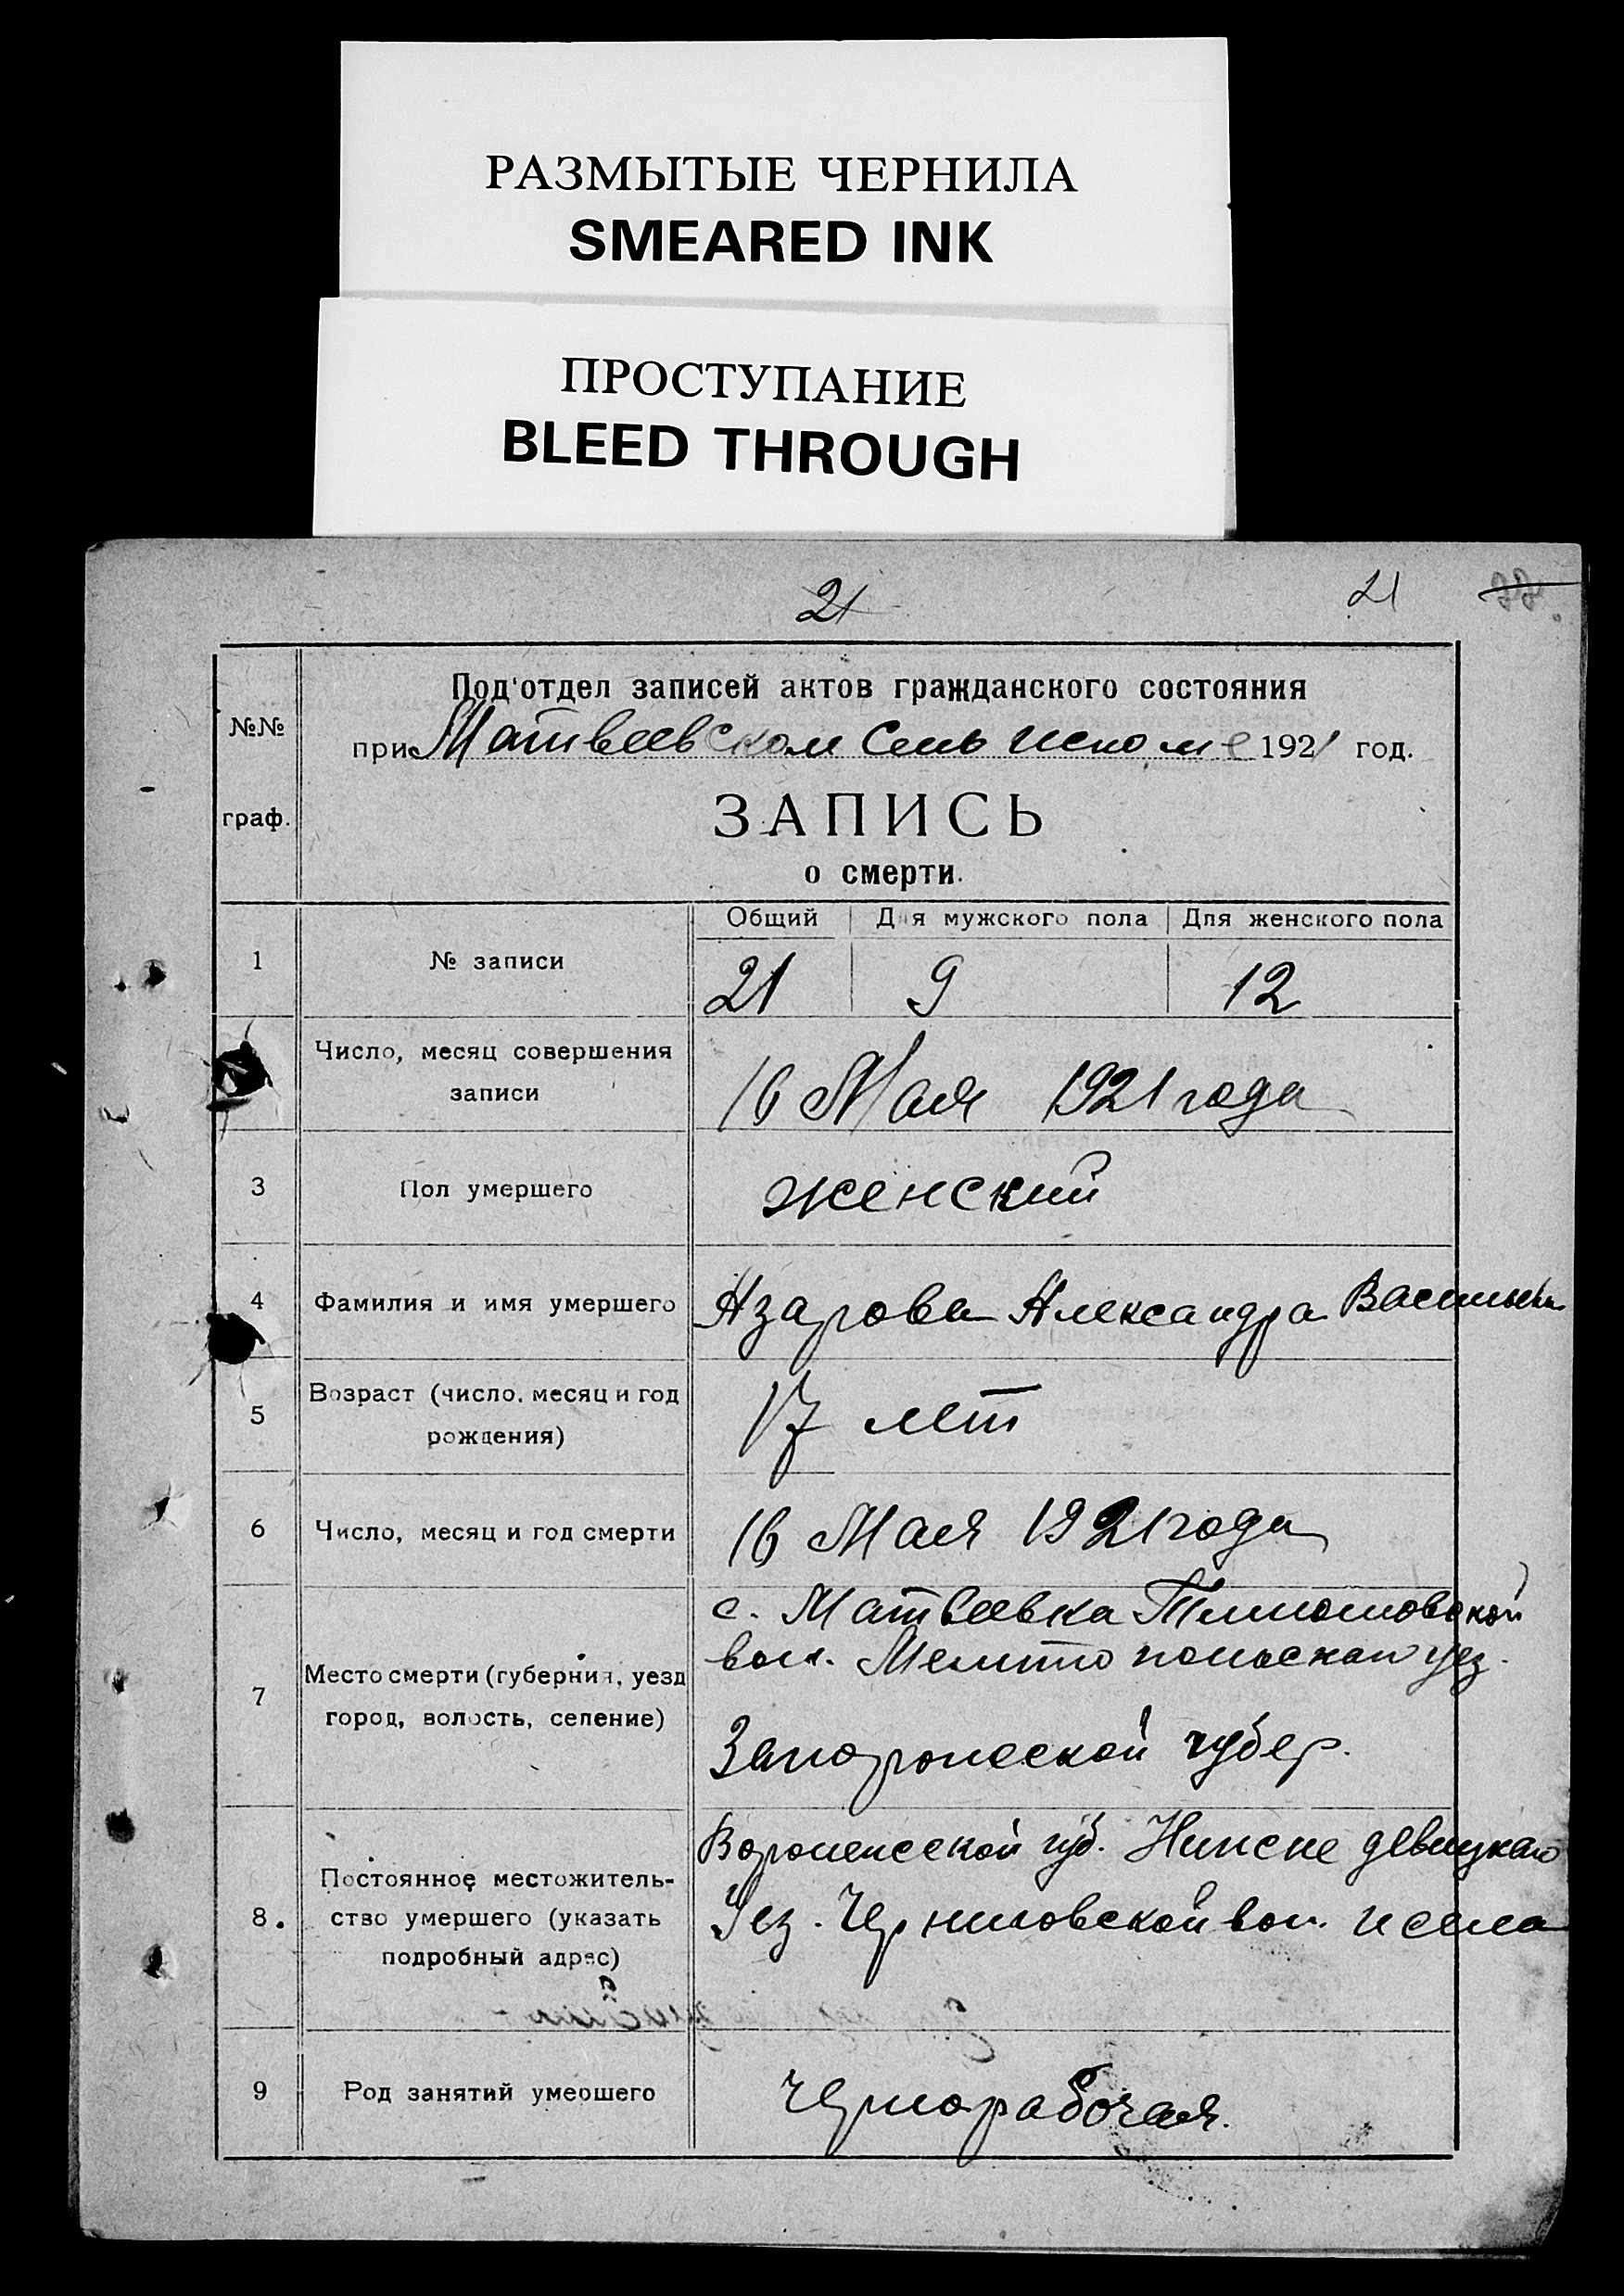 РАЗМЫТЫЕ ЧЕРНИЛА
SMEARED INK
ПРОСТУПАНИЕ
BLEED THROUGH
21 21
№№ граф.
Под'отдел записей актов гражданского состояния
при Матвеевском Сельисполкоме 1921 год.
ЗАПИСЬ
о смерти.
Общий Для мужского пола Для женского пола
1 № записи 21 9 12
Число, месяц совершения
записи
16 Мая 1921 года
3 Пол умершего женский
4 Фамилия и имя умершего Азарова Александра
5 Возраст (число, месяц и год
рождения)
17 лет
6 Число, месяц и год смерти 16 Мая 1921 года
7 Место смерти (губерния, уезд
город, волость, селение)
с. Матвеевка
вол. Мелитопольскаго уез.
Запорожской губер.
8. Постоянное местожитель-
ство умершего (указать
подробный адрес)
Воронежской губ. Нижне девицкаго
Уез. Черниговской вол. и села
9 Род занятий умершего Чернорабочая.